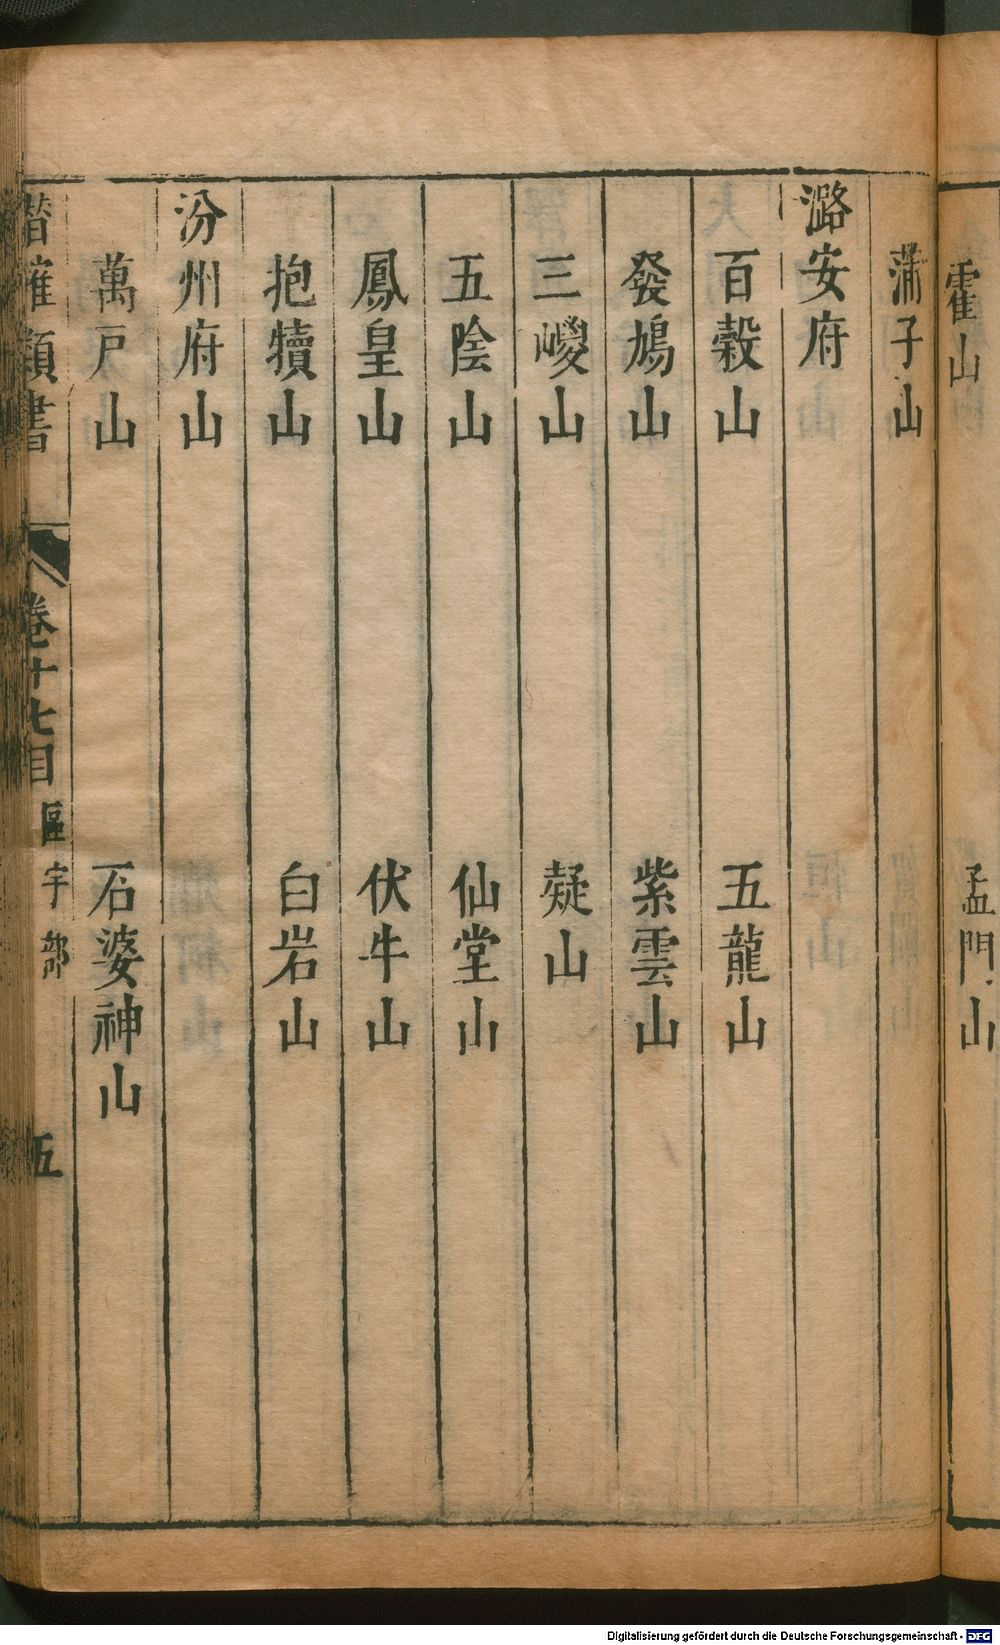 霍山 孟門山
蒲子山
潞安府
百穀山 五龍山
發鳩山 紫雲山
三嵕山 凝山
五陰山 仙堂山
鳳皇山 伏牛山
抱犢山 白岩山
汾州府山
萬戶山 石婆神山
潛確類書 卷十七目 區宇部 五
Digitalisierung gefördert durch die Deutsche Forschungsgemeinschaft - DFG